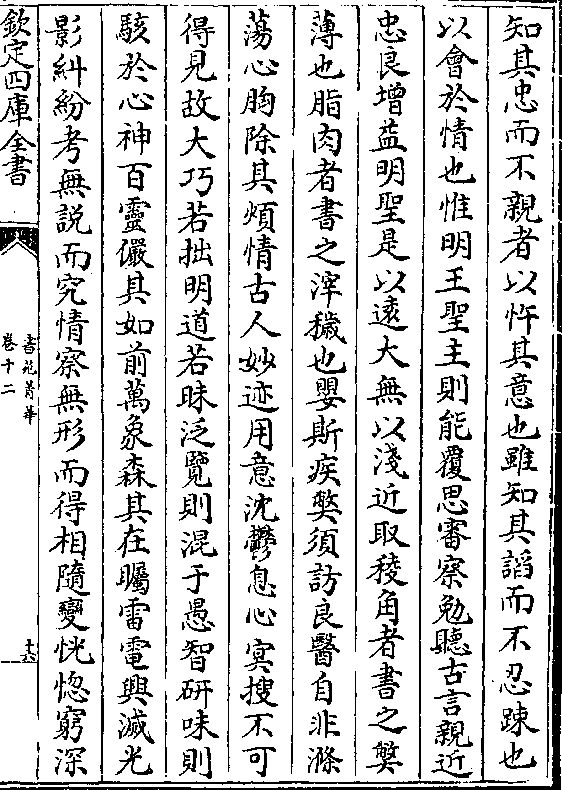 知其忠而不親者以忤其意也雖知其謟而不忍踈也
以會於情也惟明王聖主則能覆思審察勉聽古言親近
忠良增益明聖是以遠大無以淺近取稜角者書之弊
薄也脂肉者書之滓穢也嬰斯疾弊須訪良醫自非滌
蕩心胸除其煩情古人妙迹用意沈鬱息心㝠搜不可
得見故大巧若拙明道若昧泛覽則混于愚智研味則
駭於心神百靈儼其如前萬象森其在矚雷電興滅光
影糾紛考無說而究情察無形而得相隨變恍惚窮深
欽定四庫全書
書苑菁華
卷十二
十六